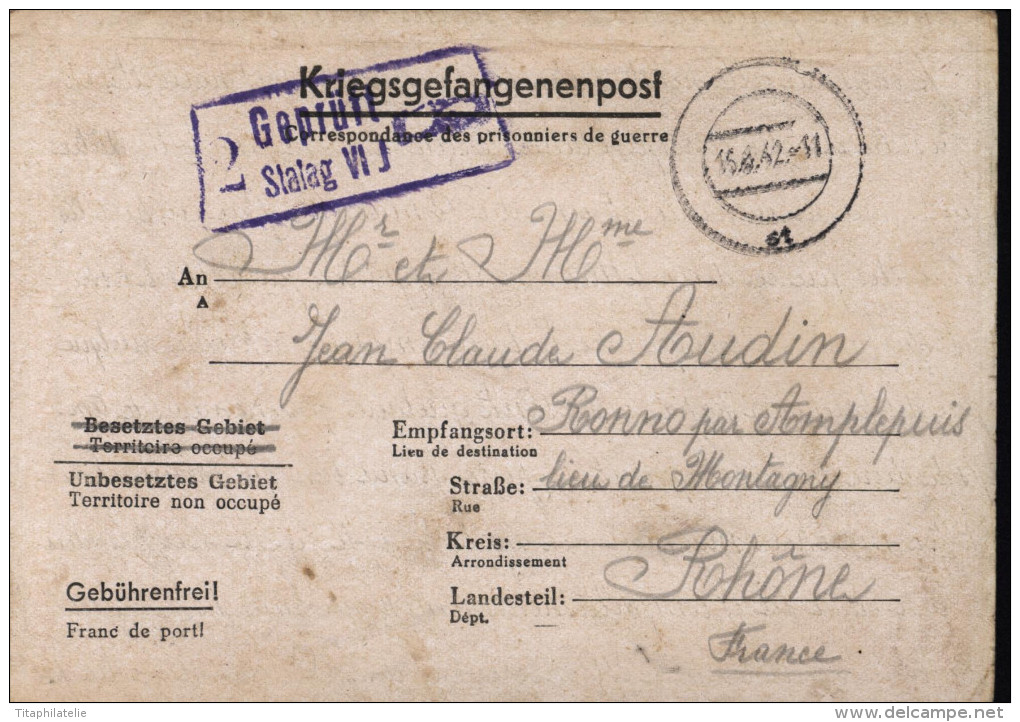 Kriegsgefangenenpost
Correspondance des prisonniers de guerre
2 Geprüft
Stalag VI J
42.-11
An Mr et Mme
A
Jean Claude Audin
Besetztes Gebiet
Territoire occupé
Unbesetztes Gebiet
Territoire non occupé
Empfangsort: Ronno par Amplepuis
Lieu de destination
Straße: lieu de Montagny
Rue
Kreis:
Arrondissement
Landesteil: Rhône
Dépt.
France
Gebührenfrei!
Franc de port!
Titaphilatelie
delcampe.net